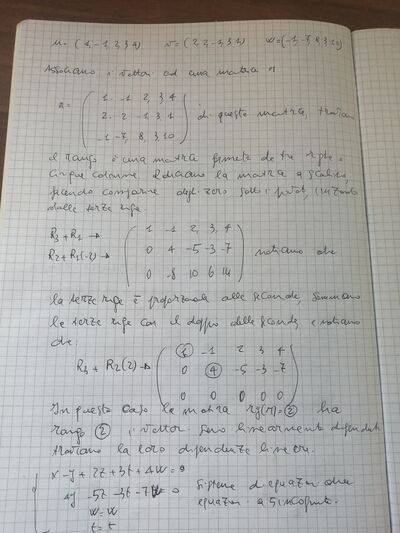 u = (1, -1, 2, 3, 4) v = (2, 2, -1, 3, 1) w = (-1, -7, 8, 3, 10)
Associamo i vettori ad una matrice M
M = ( 1 -1 2, 3 4
2. 2 -1 3, 1 ) di questa matrice, troviamo
-1 -7, 8, 3, 10
il rango è una matrice formata da tre righe e
cinque colonne. Riduciamo la matrice a scalini
facendo comparire degli zero sotto i pivot, iniziando
dalla terza riga.
R3 + R1 → ( 1 -1 2, 3, 4
R2 + R1(-2) → 0 4 -5 -3 -7 ) notiamo che
0 -8 10 6 14
la terza riga è proporzionale alla seconda, sommiamo
la terza riga con il doppio della seconda, e notiamo
che:
R3 + R2(2) → ( 1 -1 2 3 4
0 4 -5 -3 -7
0 0 0 0 0 )
In questo caso la matrice rg(M) = 2 ha
rango 2 i vettori sono linearmente dipendenti
troviamo la loro dipendenza lineare.
x - y + 2z + 3t + 4w = 0
4y - 5z - 3t - 7w = 0 Sistema di equazioni due
w = w equazioni a 5 incognite.
t = t